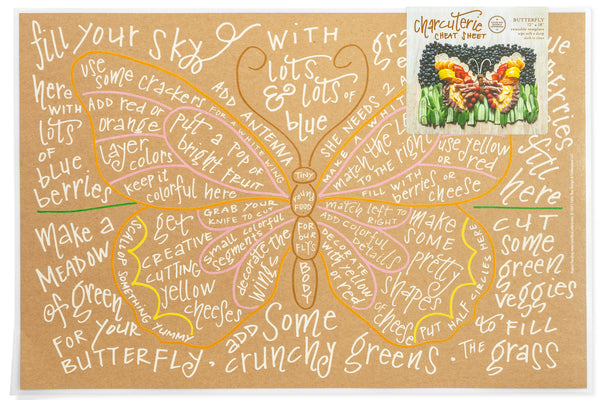 charcuterie
CHEAT SHEET
BUTTERFLY
12" x 18"
fill your sky
WITH
lots
& lots OF
blue
here
WITH
lots
OF
blue
berries
fill
here
use
some crackers FOR A WHITE WING
ADD red or
orange
layer
colors
keep it
colorful here
Put a pop of
bright FRUIT
ADD ANTENNA
SHE NEEDS 2
MAKE A WHITE
match the
to the right
use yellow
or red
FILL WITH
berries or
cheese
TINY
round
FOOD
FOR
bug
FLY'S
BODY
GRAB YOUR
KNIFE TO CUT
Small colorful
segments
decorate the
wing
get
CREATIVE
CUTTING
yellow
cheeses
SCALLOP SOMETHING YUMMY
match left to
RIGHT
ADD colorful
details
DECORATE
with yellow
or red
MAKE
SOME
pretty
shapes
of cheese
PUT HALF CIRCLES HERE
Make a
MEADOW
of green
FOR YOUR
BUTTERFLY.
ADD Some
crunchy greens.
CUT
some
green
veggies
& to FILL
THE grass